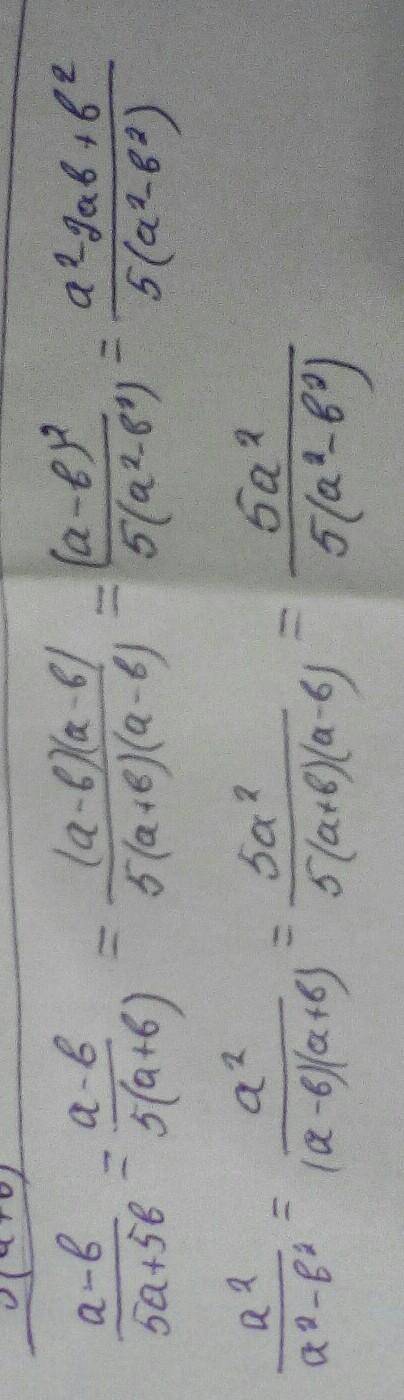 5(a+в)
a-в/5a+5в = a-в/5(a+в) = (a-в)(a-в)/5(a+в)(a-в) = (a-в)²/5(a²-в²) = a²-2aв+в²/5(a²-в²)
a²/a²-в² = a²/(a-в)(a+в) = 5a²/5(a+в)(a-в) = 5a²/5(a²-в²)